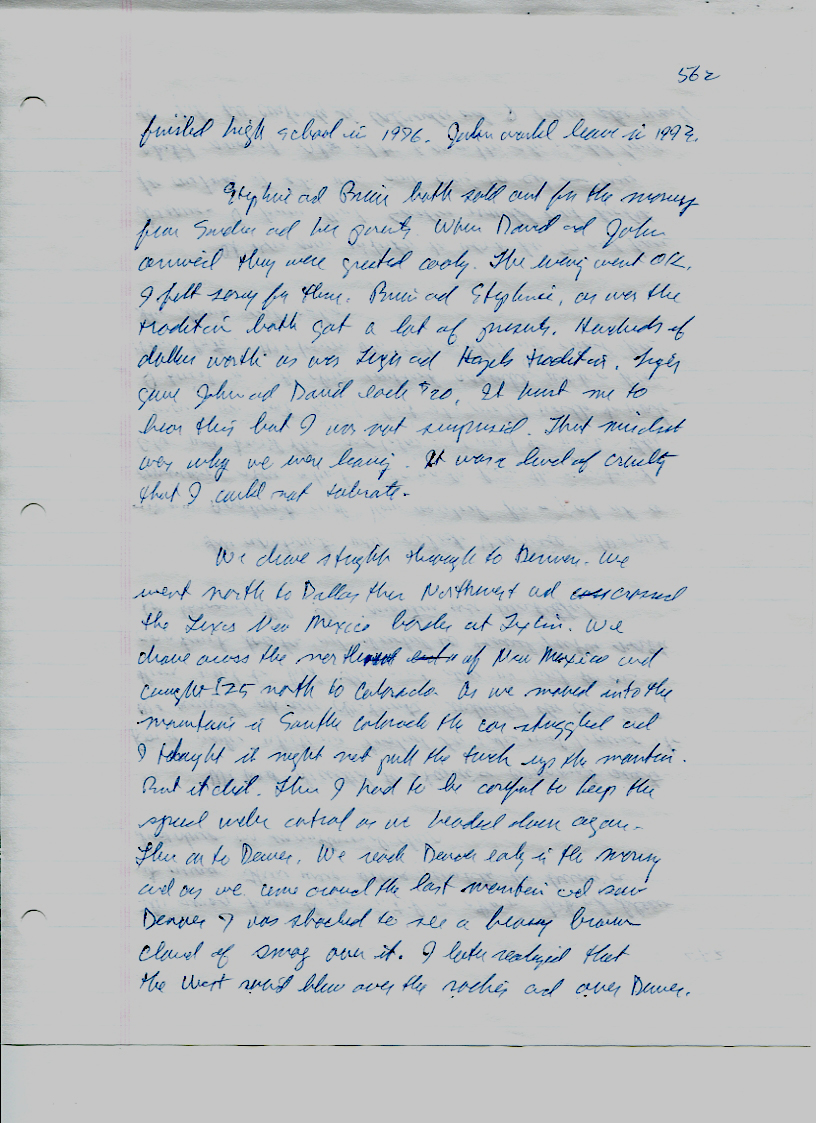 562
finished high school in 1996. John would leave in 1997.
Stephnie ad Brien both sold out for the money
from Sandra ad her parents. When David ad John
arrived they were greeted cooly. The evening went OK.
I felt sorry for them. Brien ad Stephnie, as was the
tradition both got a lot of presents. Hundreds of
dollars worth as was ad Hazels tradition.
gave John ad David each $20. It hurt me to
hear this but I was not surprised. That mindset
was why we were leaving. It was a level of cruelty
that I could not tolerate.
We drove straight through to Denver. We
went north to Dallas then Northwest ad crossed
the Texas New Mexico border at Texlin. We
drove across the north of New Mexico and
caught I25 north to Colorado. As we moved into the
mountains in Southern Colorado the car struggled ad
I thought it might not pull the truck up the mountain.
But it did. Then I had to be careful to keep the
speed under control as we headed down again.
Then on to Denver. We reach Denver early in the morning
ad as we came around the last mountain ad saw
Denver I was shocked to see a heavy brown
cloud of smog over it. I later realized that
the West wind blew over the rockies ad over Denver.